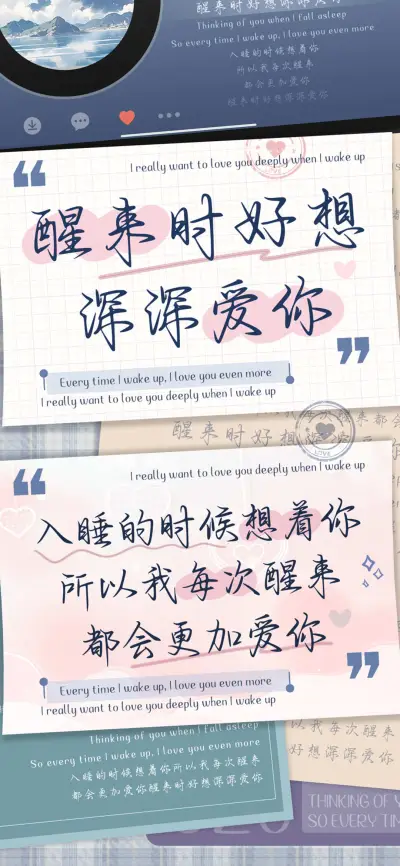 醒来时好想深深爱你
Thinking of you when I fall asleep
So every time I wake up, I love you even more
入睡的时候想着你
所以我每次醒来
都会更加爱你
醒来时好想深深爱你
I really want to love you deeply when I wake up
醒来时好想
深深爱你
Every time I wake up, I love you even more
I really want to love you deeply when I wake up
醒来时好想深深爱你
I really want to love you deeply when I wake up
入睡的时候想着你
所以我每次醒来
都会更加爱你
Every time I wake up, I love you even more
I really want to love you deeply when I wake up
Thinking of you when I fall asleep
So every time I wake up, I love you even more
入睡的时候想着你所以我每次醒来
都会更加爱你醒来时好想深深爱你
以我每次醒来
好想深深爱你
THINKING OF Y
SO EVERY TIM